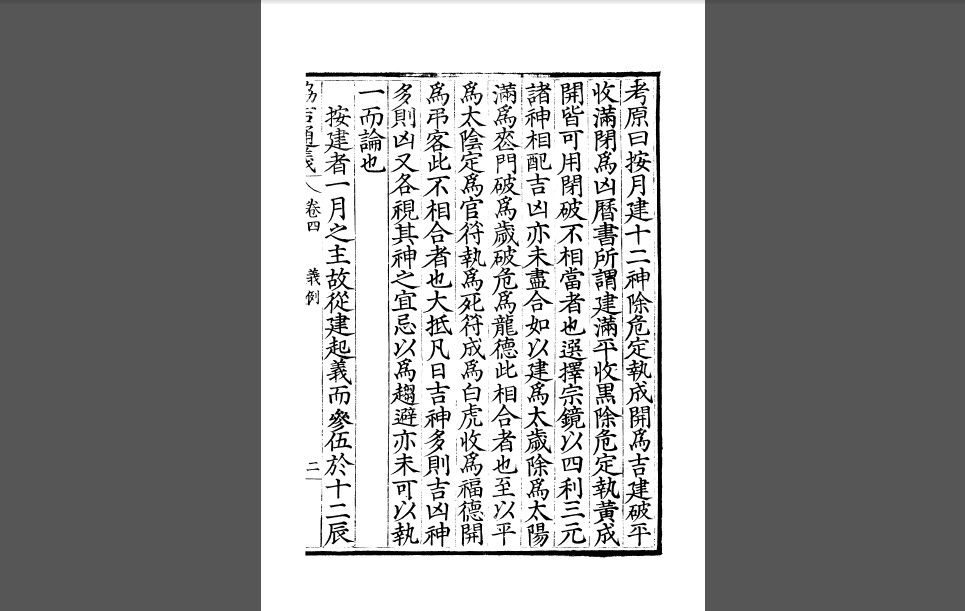 考原曰按月建十二神除危定執成開爲吉建破平
收滿閉爲凶曆書所謂建滿平收黒除危定執黃成
開皆可用閉破不相當者也選擇宗鏡以四利三元
諸神相配吉凶亦未盡合如以建爲太歲除爲太陽
滿爲䘮門破爲歲破危爲龍德此相合者也至以平
爲太陰定爲官符執爲死符成爲白虎收爲福德開
爲弔客此不相合者也大抵凡日吉神多則吉凶神
多則凶又各視其神之宜忌以爲趨避亦未可以執
一而論也
按建者一月之主故從建起義而參伍於十二辰
卷四 義例 二